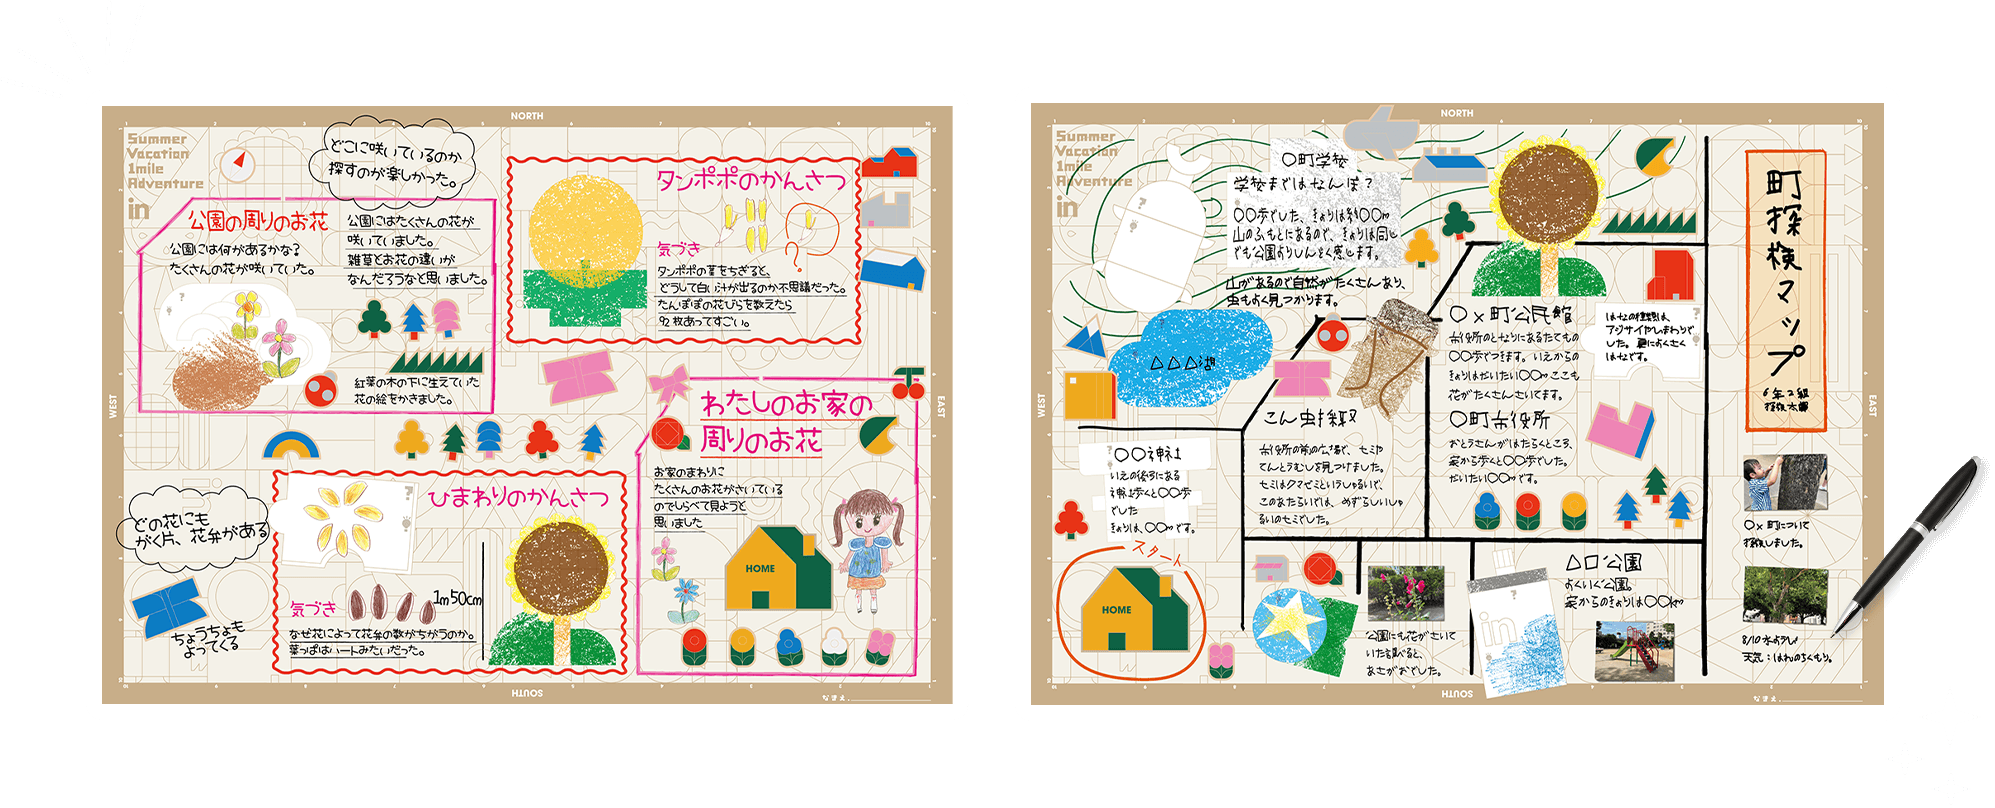 NORTH
Summer
Vacation
1mile
Adventure
in
どこに咲いているのか
探すのが楽しかった。
公園の周りのお花
公園には何があるかな?
たくさんの花が咲いていた。
公園にはたくさんの花が
咲いていました。
雑草とお花の違いが
なんだろうなと思いました。
紅葉の木の下に生えていた
花の絵をかきました。
タンポポのかんさつ
?
気づき
タンポポの茎をちぎると、
どうして白い汁が出るのか不思議だった。
たんぽぽの花びらを数えたら
92枚あってすごい。
WEST
EAST
わたしのお家の
周りのお花
お家のまわりに
たくさんのお花がさいている
のでしらべて見ようと
思いました
HOME
どの花にも
がく片、花弁がある
ちょうちょも
よってくる
ひまわりのかんさつ
1m50cm
気づき
なぜ花によって花弁の数がちがうのか。
葉っぱはハートみたいだった。
SOUTH
なまえ.
NORTH
Summer
Vacation
1mile
Adventure
in
〇町学校
学校まではなんぽ?
〇〇歩でした、きょりは約〇〇m
山のふもとにあるので、きょりは同じ
でも公園よりしんどく感じます。
山があるので自然がたくさんあり、
虫もよく見つかります。
△△△湖
WEST
EAST
〇〇神社
いえの後ろにある
神社歩くと〇〇歩
でした
きょりは、〇〇mです。
スタート
HOME
こん虫採取
市役所の前の広場で、セミや
てんとうむしを見つけました。
セミはクマゼミというしゅるいで、
このあたりでは、めずらしいしゅ
るいのセミでした。
〇×町公民館
市役所のとなりにあるたてもの
〇〇歩でつきます。いえからの
きょりはだいたい〇〇mここも
花がたくさんさいてます。
〇町市役所
おとうさんがはたらくところ、
家から歩くと〇〇歩でした。
だいたい〇〇mです。
はなの種類は、
アジサイやひまわりで
した。夏によくさく
はなです。
公園にも花がさいて
いた調べると、
あさがおでした。
△□公園
よくいく公園。
家からのきょりは〇〇km
町探検マップ
6年2組
探検太郎
〇×町について
探検しました。
8/10 水ようび
天気:はれのちくもり。
SOUTH
なまえ.